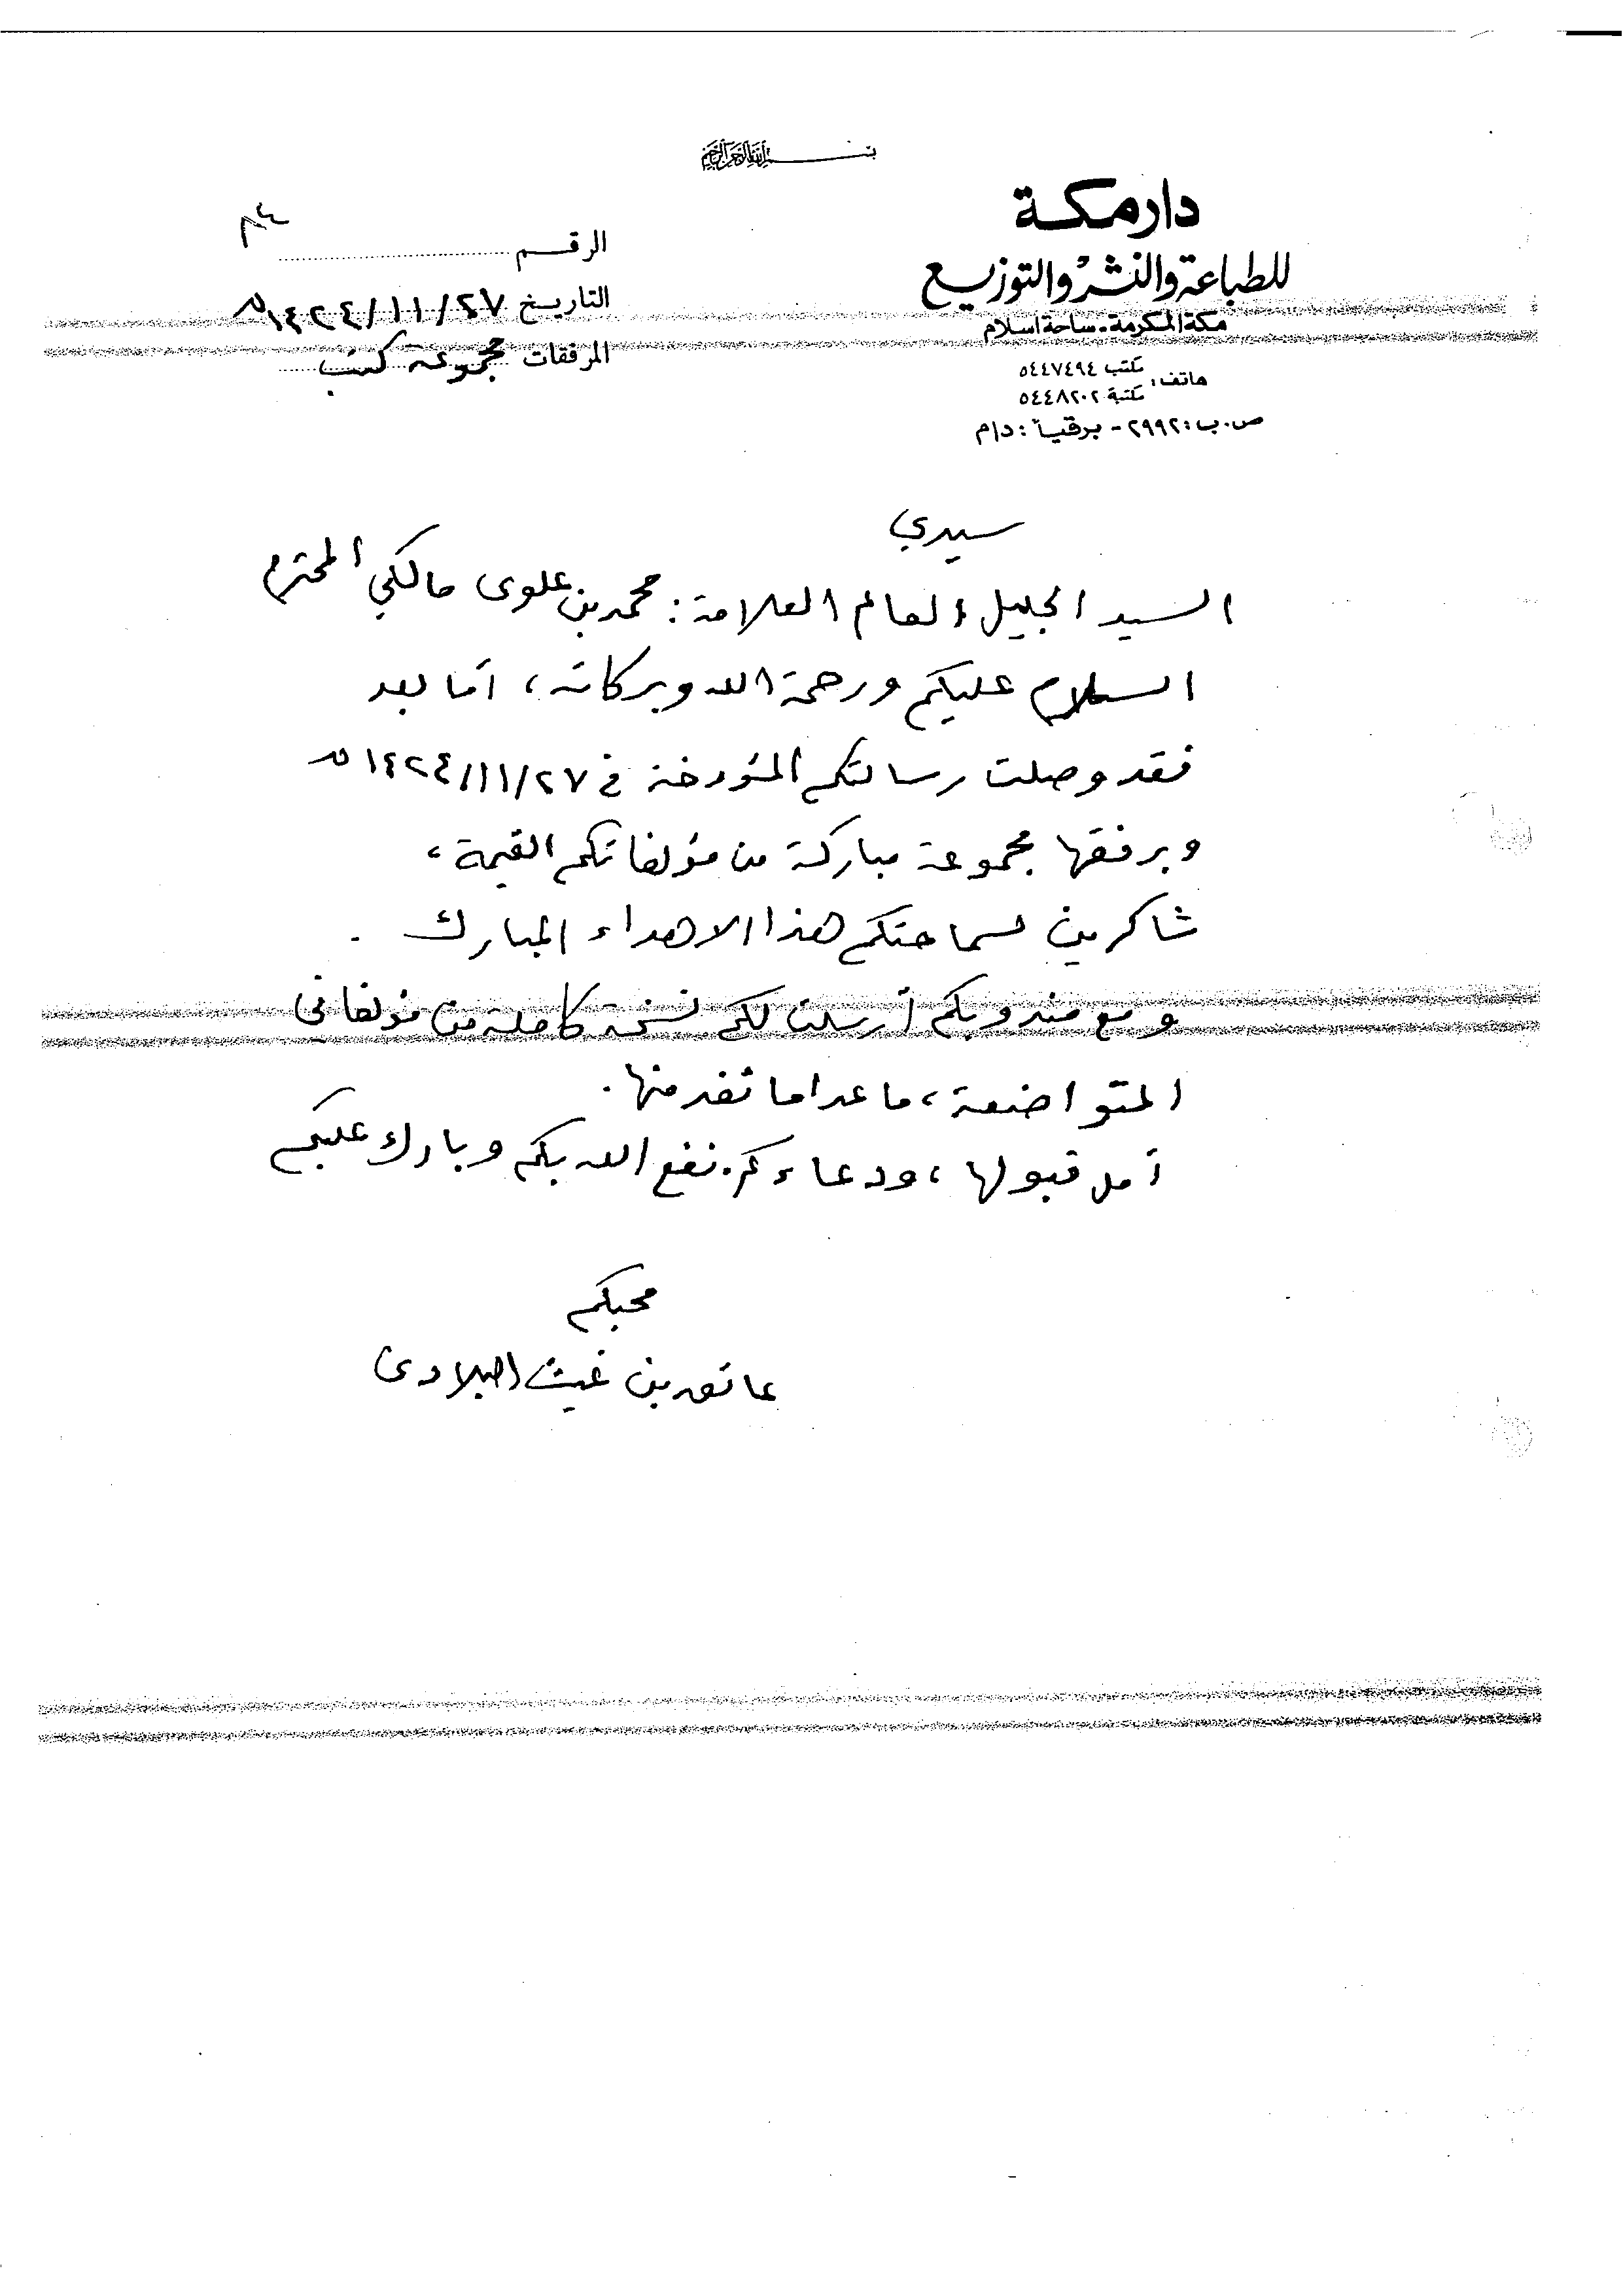 بسم الله الرحمن الرحيم
دار مكة
للطباعة والنشر والتوزيع
مكة المكرمة - ساحة اسلام
هاتف: مكتب ٥٤٤٧٤٩٤
مكتبة ٥٤٤٨٢٠٢
ص.ب: ٢٩٩٢ - برقياً: دام
الرقم
التاريخ ٢٧/١١/١٤٢٤هـ
المرفقات مجموعة كتب
سيدي
السيد الجليل العالم العلامة: محمد بن علوى مالكي المحترم
السلام عليكم ورحمة الله وبركاته، أما بعد
فقد وصلت رسالتكم المؤرخة في ٢٧/١١/١٤٢٤هـ
وبرفقها مجموعة مباركة من مؤلفاتكم القيمة،
شاكرين لسماحتكم هذا الاهداء المبارك.
ومع مندوبكم أرسلت لكم نسخة كاملة من مؤلفاتى
المتواضعة، ما عدا ما نفد منها.
آمل قبولها، ودعاءكم. نفع الله بكم وبارك عليكم
محبكم
عاتق بن غيث البلادى